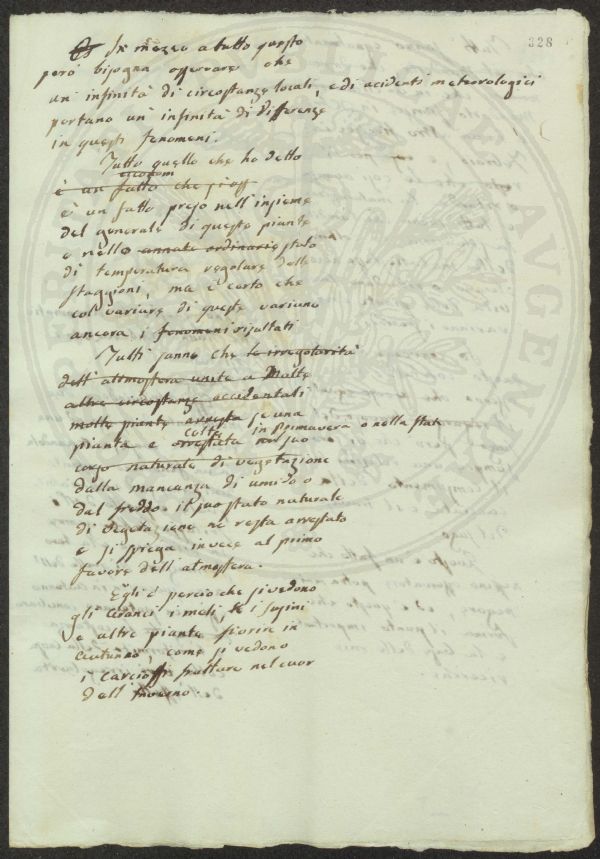 328
In mezzo a tutto questo
però bisogna osservare che
un' infinità di circostanze locali, e di acidenti meteorologici
portano un' infinità di differenze
in questi fenomeni.
Tutto quello che ho detto
è un fatto che si oss
è un fatto preso nell' insieme
del generale di queste piante
e nello annate ordinarie stato
di temperatura regolare delle
staggioni, ma è certo che
col variare di queste variano
ancora i fenomeni risultati
Tutti sanno che le irregolarità
dell' attmosfera unite a Molte
altre circostanze accidentali
molte piante arresta se una
pianta è colta in Primavera o nella state
arrestata suo
corso naturale di vegetazione
dalla mancanza di umido o
dal freddo. il suo stato naturale
di vegetazione ne resta arrestato
e si spiega invece al primo
favore dell' atmosfera.
Egli è perciò che si vedono
gli Aranci i meli, i susini
e altre piante fiorire in
Autunno, come si vedono
i carcioffi fruttare nel cuor
dell' inverno.